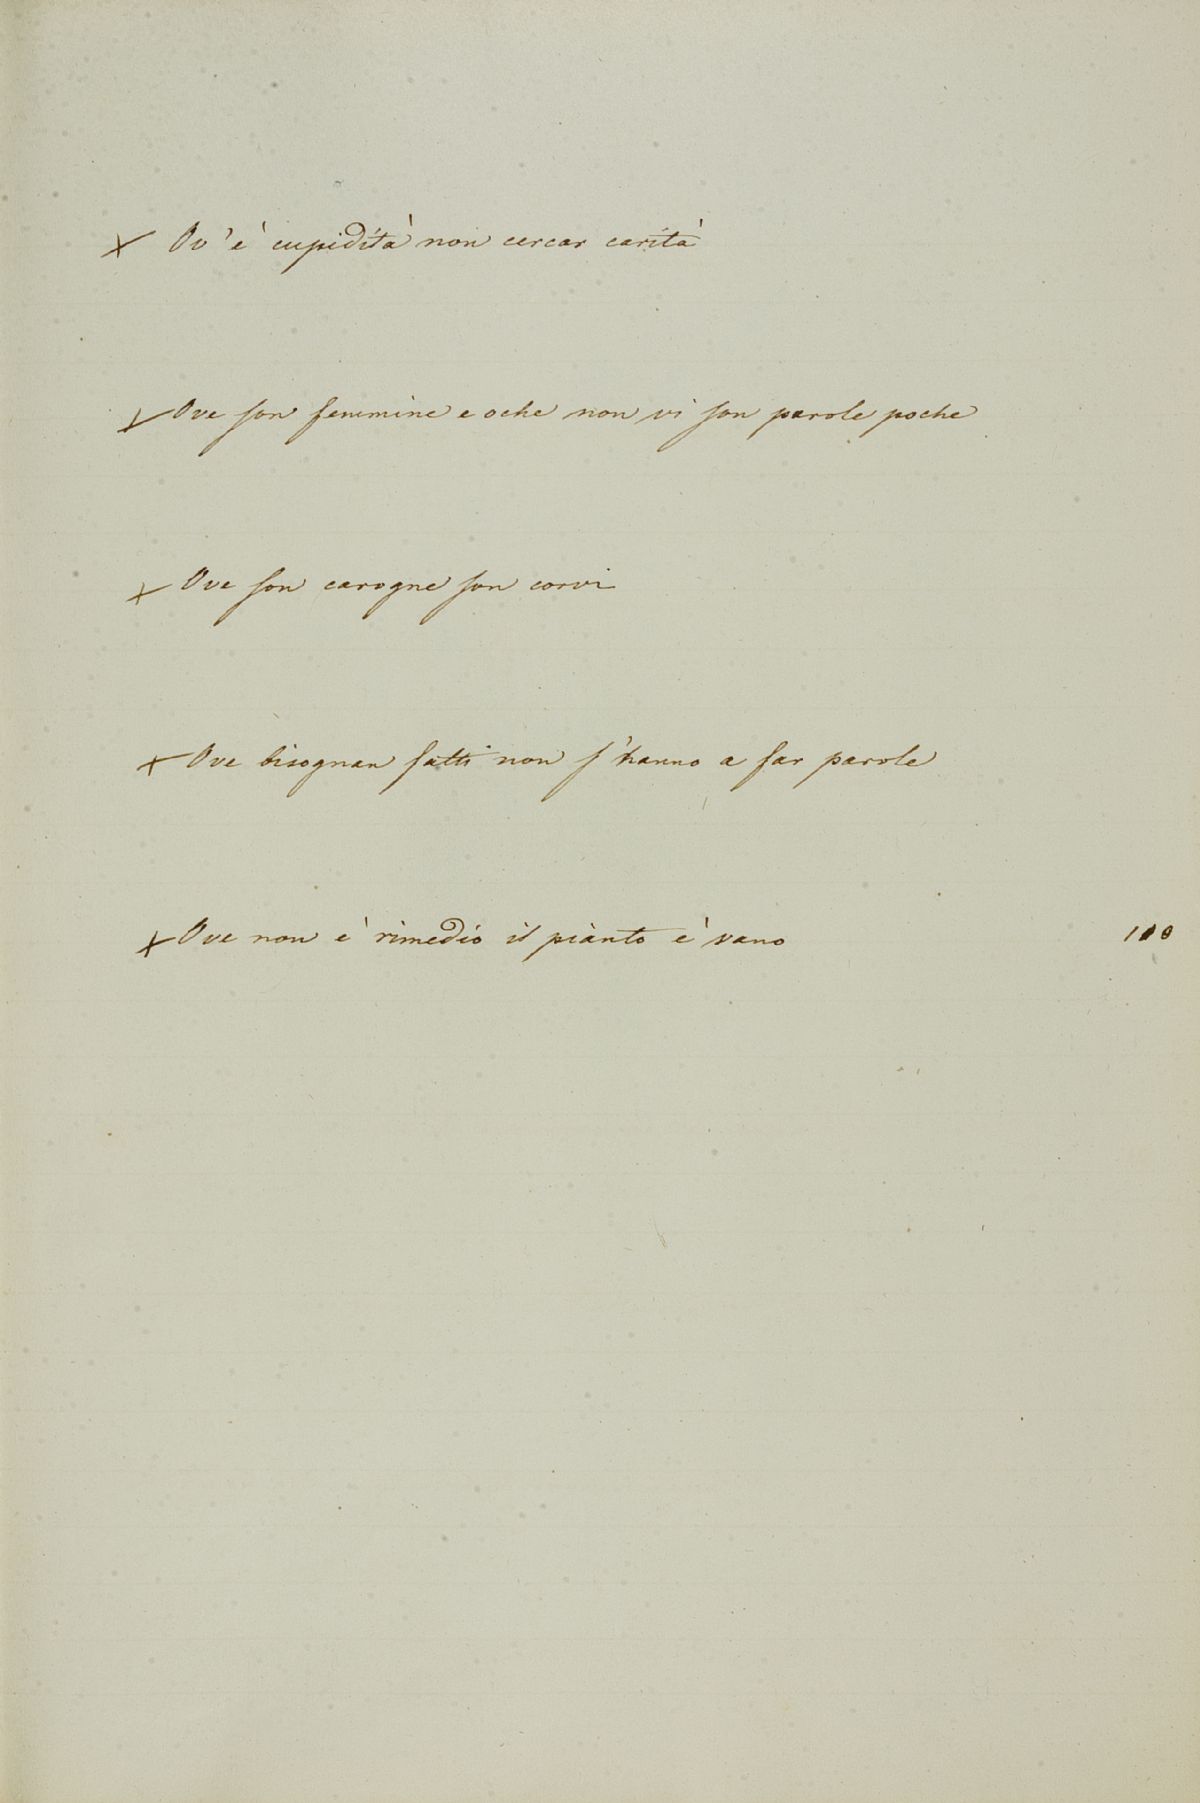 × Ov'è cupidità non cercar carità
× Ove son femmine e oche non vi son parole poche
× Ove son carogne son corvi
× Ove bisognan fatti non s'hanno a far parole
× Ove non è rimedio il pianto è vano